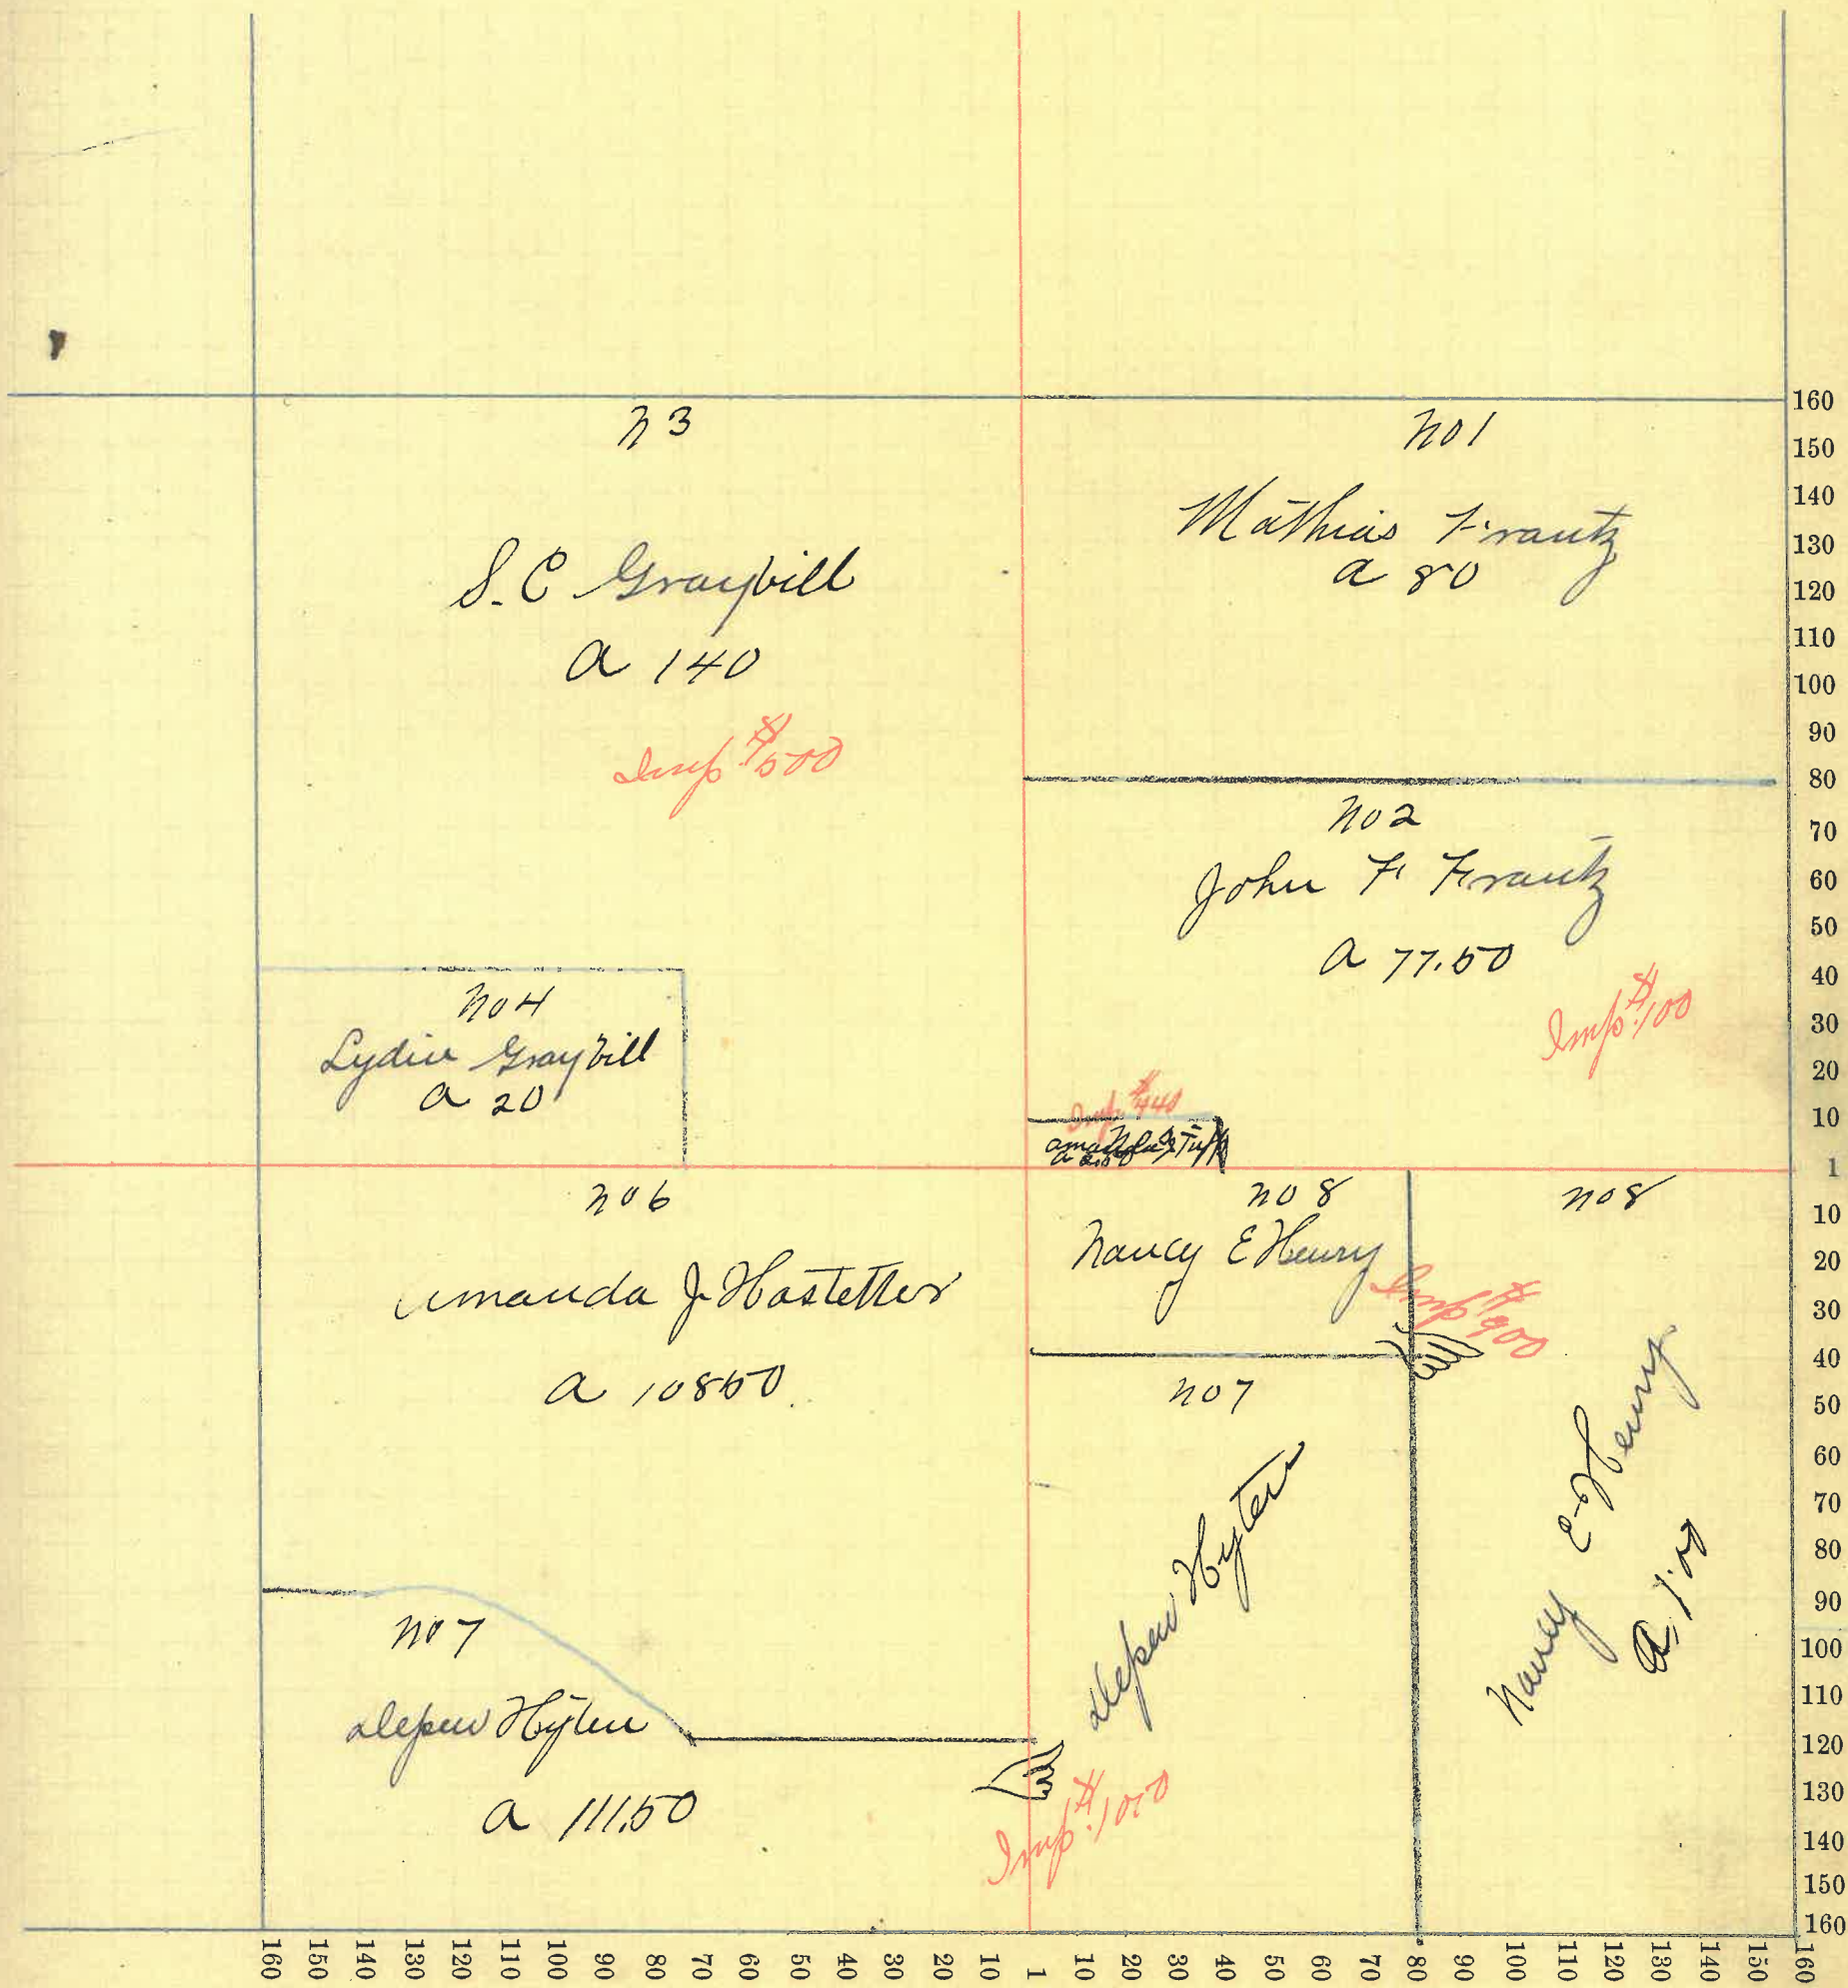 N 3
S. C Graybill
a 140
Imp $500
No 1
Mathias Frantz
a 80
No 2
John F Frantz
a 77.50
Imp $100
No 4
Lydia Graybill
a 20
Imp $440
a 2.50
No 6
Amanda J Hostetter
a 10850
No 8
Nancy E Henry
Imp $900
No 8
Nancy E Henry
a, 100
No 7
No 7
a 111.50
Imp $
160
150
140
130
120
110
100
90
80
70
60
50
40
30
20
10
1
10
20
30
40
50
60
70
80
90
100
110
120
130
140
150
160
160 150 140 130 120 110 100 90 80 70 60 50 40 30 20 10 1 10 20 30 40 50 60 70 80 90 100 110 120 130 140 150 160